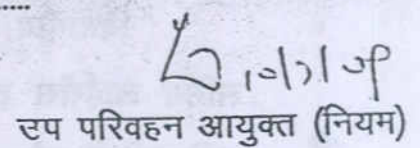 उप परिवहन आयुक्त (नियम)